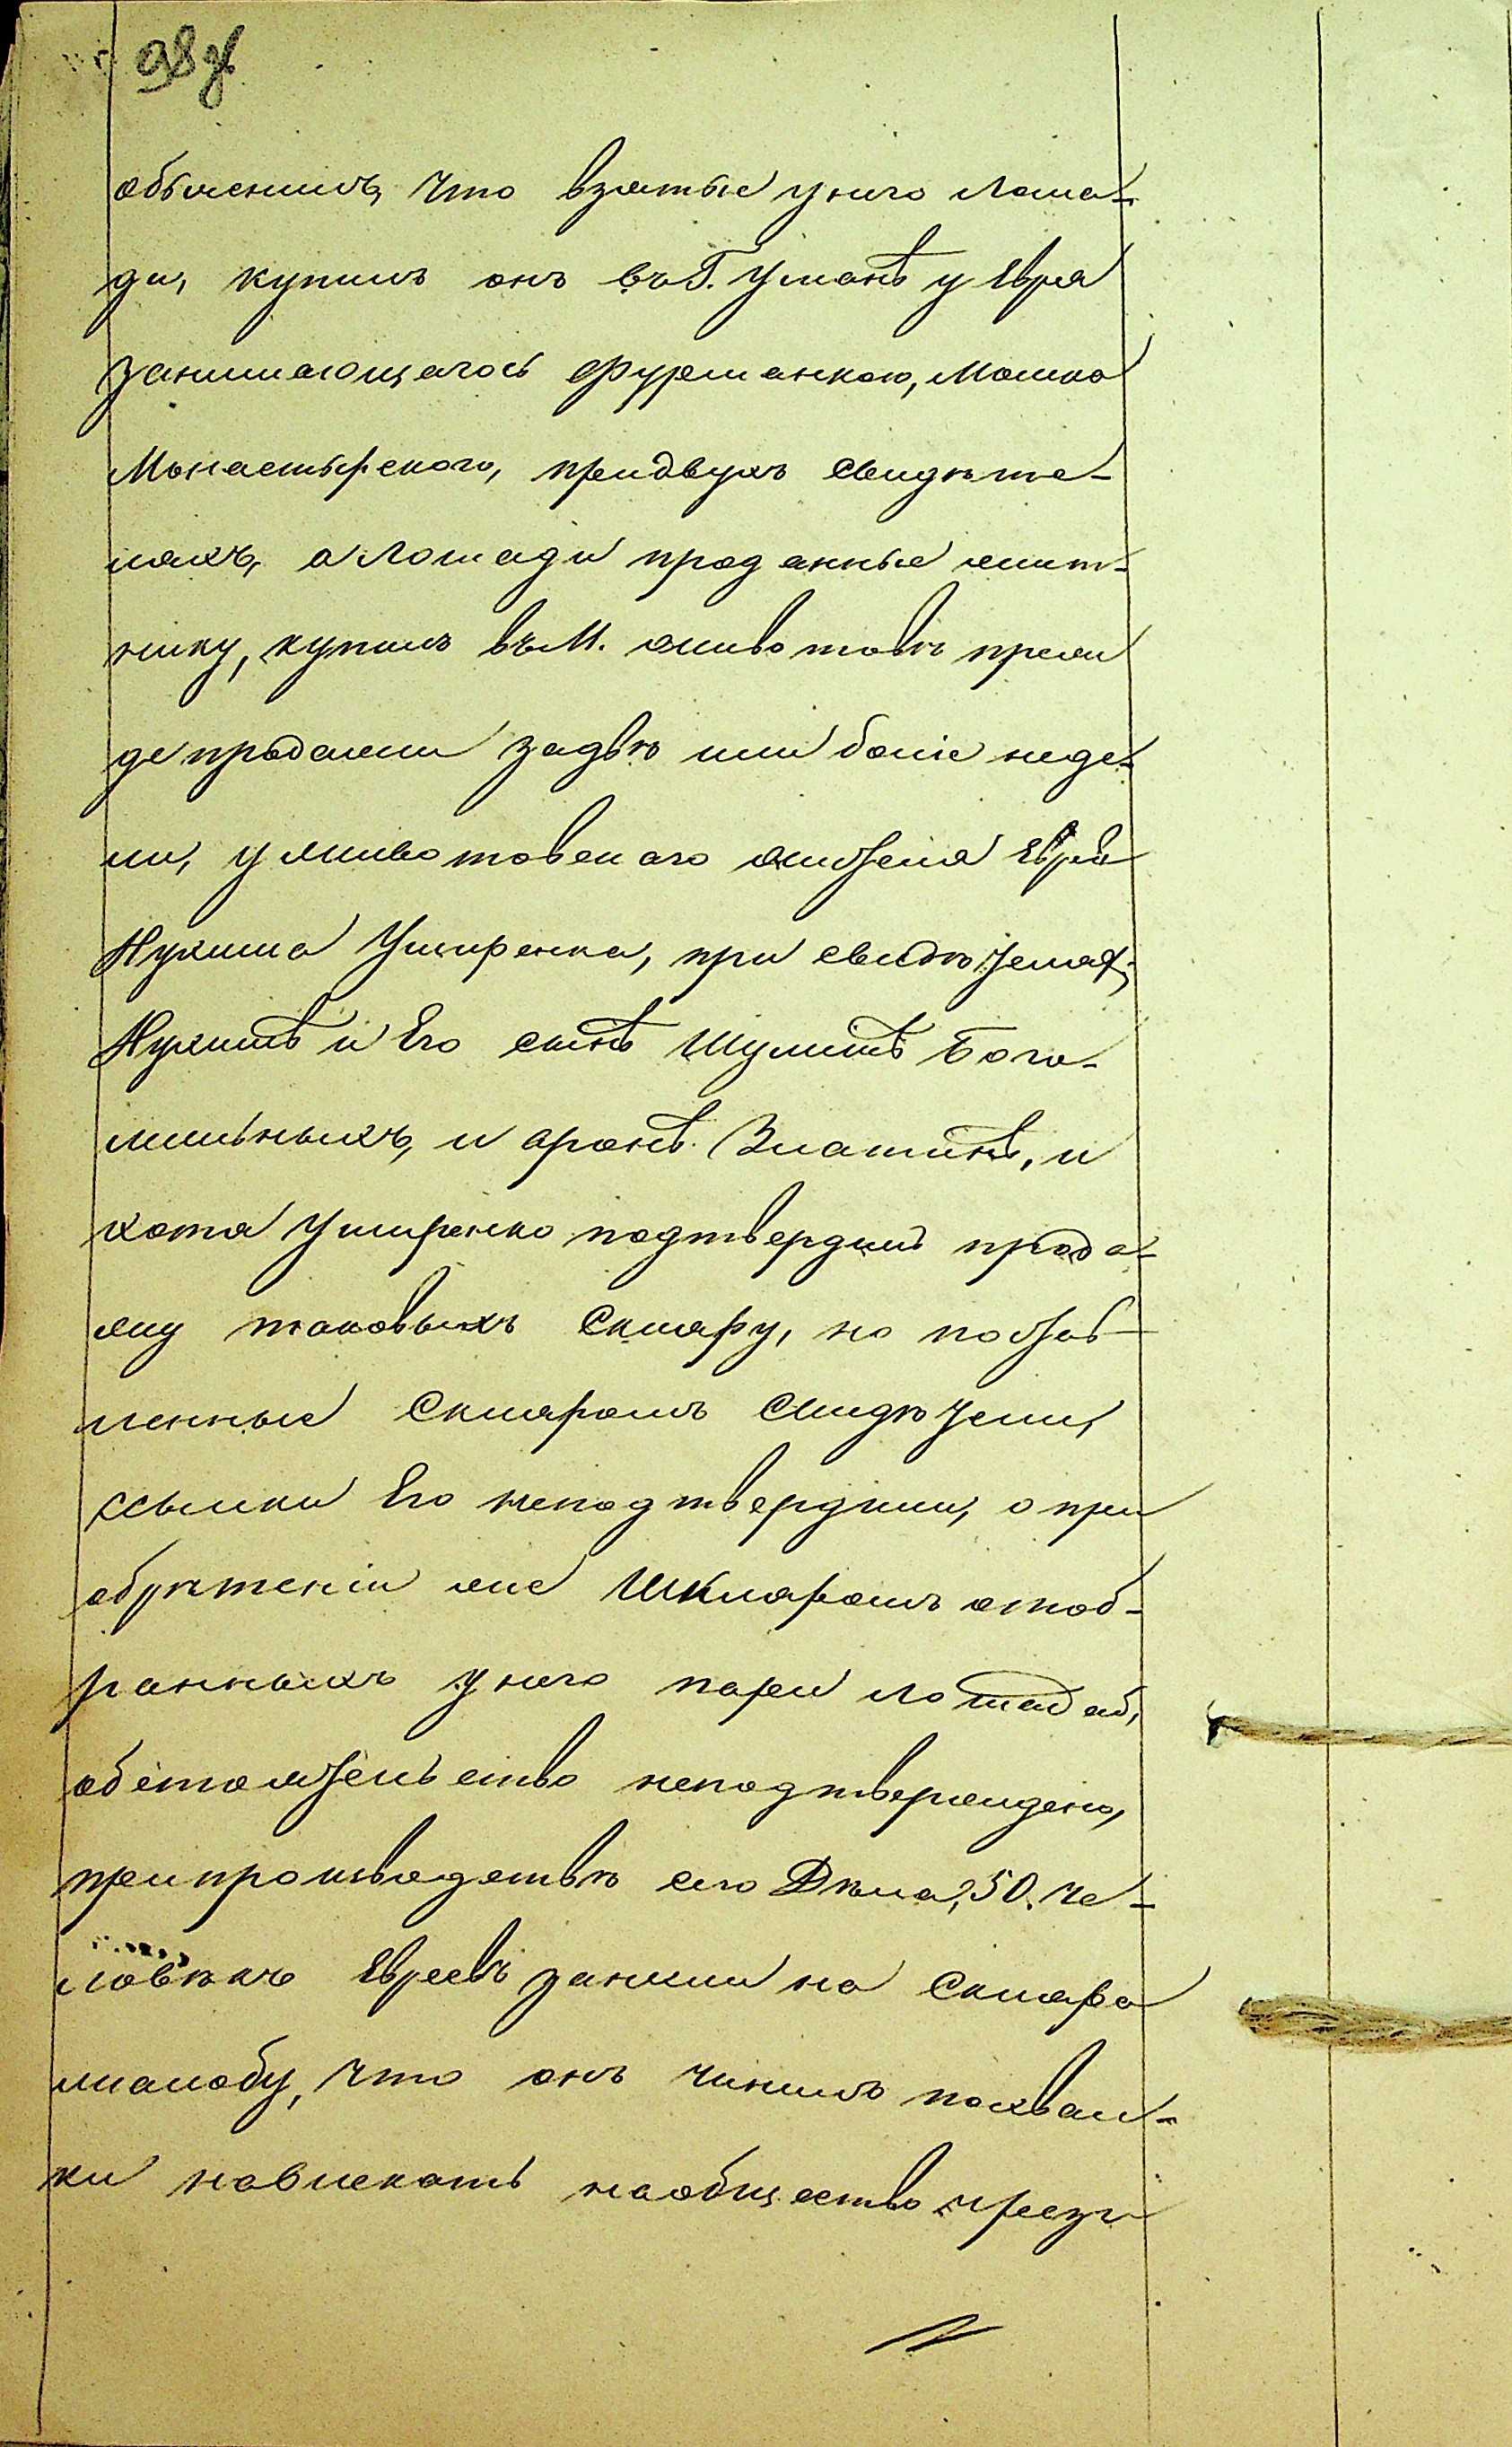 98 об
объяснилъ, что взятые у него лоша-
ди, купилъ онъ въ Г. Уманѣ у Еврея
занимающагось фурманкою, Мошка
Монастырского, при двухъ свидѣте-
ляхъ, а лошади проданные жит-
нику, купилъ въ М. Животовѣ преж
де продажи за двѣ или боліе неде-
ли, у Животовскаго жителя Еврея
Нухима Ушеренка, при свидѣтелях;
Нухимѣ и Его сынѣ Шулимѣ Бого-
мильныхъ, и Аронѣ Златинѣ, и
хотя Ушеренко подтвердилъ прода-
жу таковыхъ Скляру, но постав-
ленные Скляромъ свидѣтели,
ссылки Его неподтвердили, о при
обрѣтеніи же Шкляромъ отоб-
ранныхъ у него пары лошадей,
обстоятельство неподтверждено,
при производствѣ сего Дѣла, 50. че-
ловѣкъ Евреевъ занесли на Скляра
жалобу, что онъ чинилъ похвал-
ки навлекать на общество чрезъ